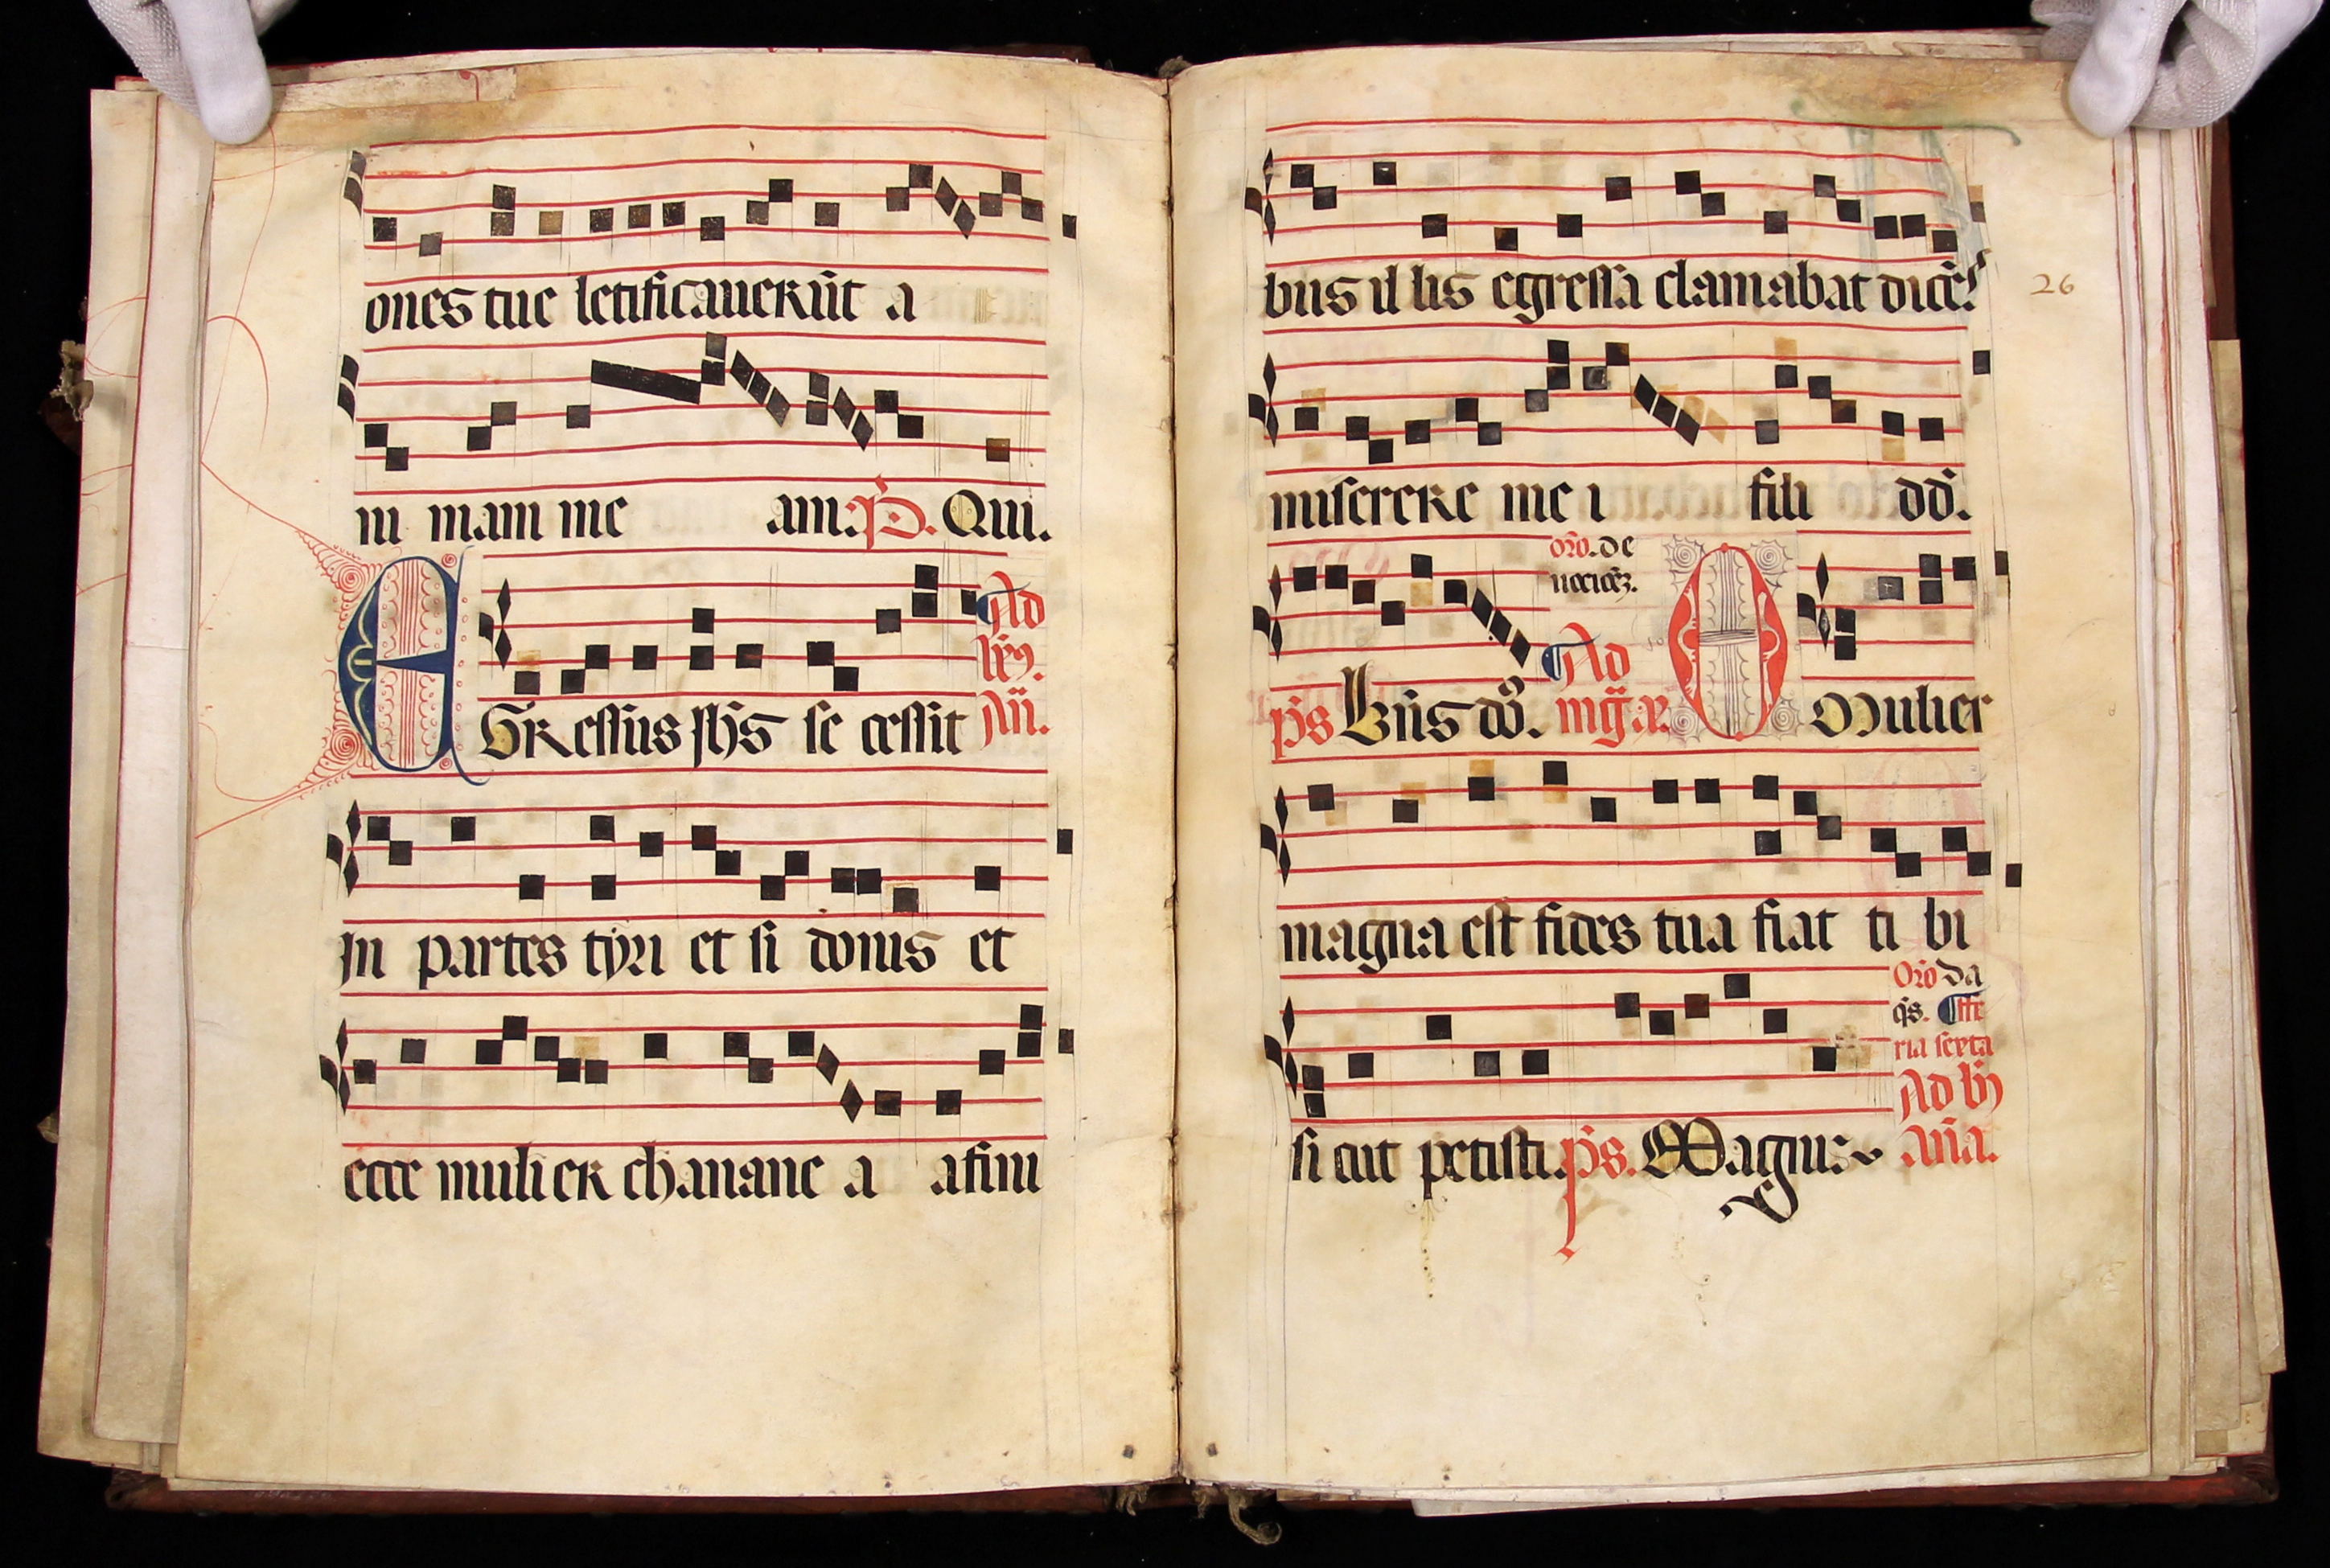 ones tue letificauerūt a
ni mam me am: P. Qui.
EGRessus ihs se cessit
Ad
An.
in partes tyri et si donis et
ecce muli eR chanane a a fini
26
bus il lis egressa clamabat dicēs
miserere me i fili dd.
oro. de
ps Bn̄s do. Ad mg. a. O Mulier
magna est fides tua fiat ti bi
Oro da
qs. ffe
ria sexta
si cut petisti. ps. Magnus
Ad bn̄
Aña.